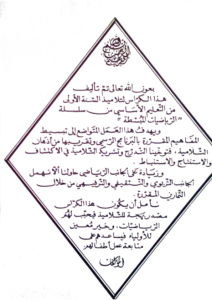 بعون الله تعالى تمّ تأليف
هذا الكرّاس لتلاميذ السنة الأولى
من التعليم الأساسي من سلسلة
"الرياضيات المبسّطة"
ويهدف هذا العمل المتواضع إلى تبسيط
المفاهيم المقررة بالبرنامج الرسمي وتقريبها من أذهان
التلاميذ، فتوخينا التدرّج وتشريك التلاميذ في الاكتشاف
والاستنتاج والاستنباط.
وزيادة على الجانب الرياضي حاولنا ألا نهمل
الجانب التربوي والتثقيفي والترفيهي من خلال
التمارين المقترحة.
نأمل أن يكون هذا الكرّاس
مصدر بهجة للتلاميذ فيحبّب لهم
الرياضيات، وخير معين
للأولياء فيساعدهم على
متابعة عمل أطفالهم